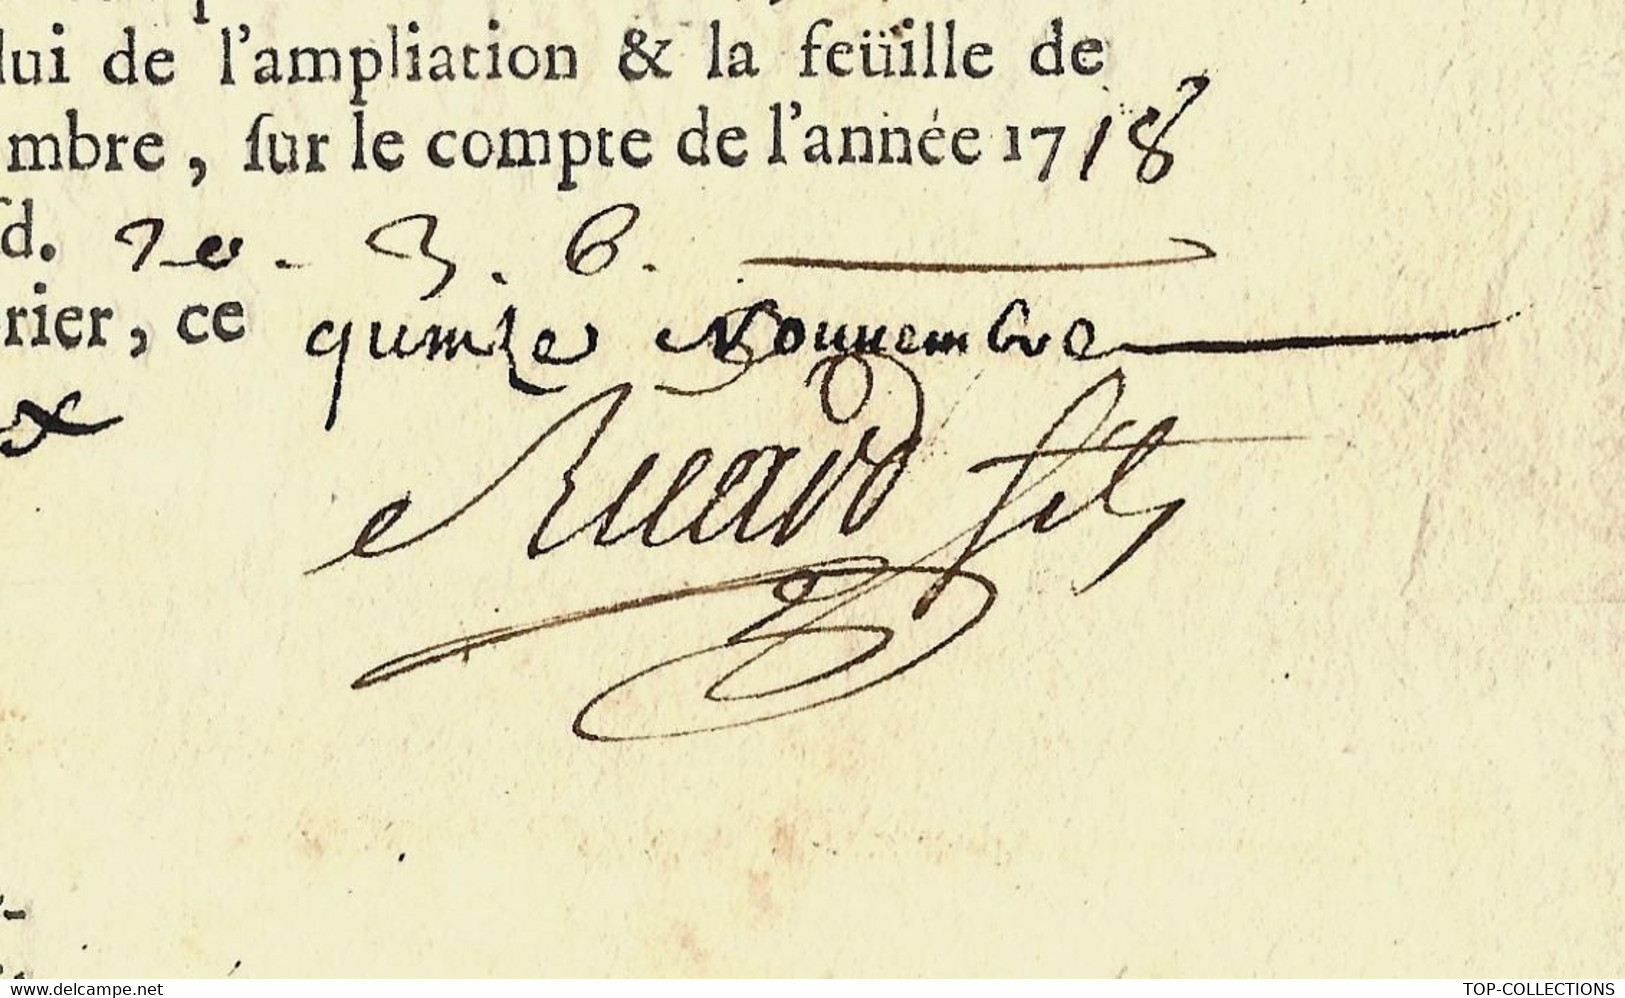 lui de l'ampliation & la feüille de
mbre, ſur le compte de l'année 1718
ſd.
rier, ce quinze Nouuembre
Ricard fils
www.delcampe.net
TOP-COLLECTIONS